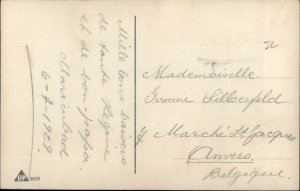 Mille bons baisers
de tante Régine
et de bonpapa
Marienbad
6-7-1929
Mademoiselle
Yvonne Silberfeld
Marché St. Jacques
Anvers
Belgique.